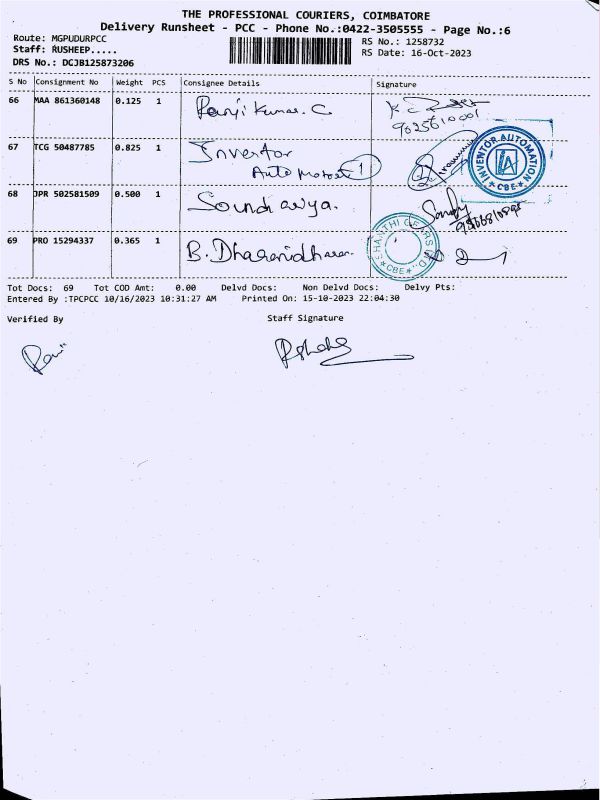 THE PROFESSIONAL COURIERS, COIMBATORE
Delivery Runsheet - PCC - Phone No.:0422-3505555 - Page No.:6
Route: MGPUDURPCC
RS No.: 1258732
Staff: RUSHEEP.....
RS Date: 16-Oct-2023
DRS No.: DCJB125873206
S No Consignment No Weight PCS Consignee Details Signature
66 MAA 861360148 0.125 1 Ranji Kumar. C
67 TCG 50487785 0.825 1 Inventor
Automation 1
INVENTOR AUTOMATION
IA
* CBE *
68 JPR 502581509 0.500 1 Soundarya.
69 PRO 15294337 0.365 1 B. Dharanidharan
SHANTHI GEARS LTD.
* CBE *
Tot Docs: 69 Tot COD Amt: 0.00 Delvd Docs: Non Delvd Docs: Delvy Pts:
Entered By :TPCPCC 10/16/2023 10:31:27 AM Printed On: 15-10-2023 22:04:30
Verified By Staff Signature